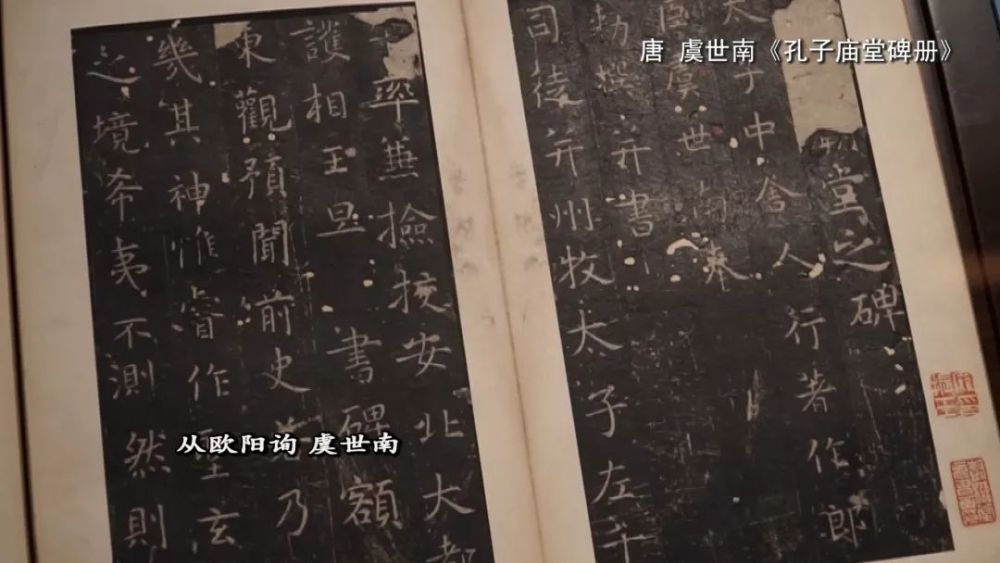 唐 虞世南《孔子庙堂碑册》
堂之碑
太子中舍人行著作郎
臣虞世南奉
勑撰并書
司徒并州牧太子左千
率兼檢挍安北大都
護相王旦書碑額
東觀預聞前史乃
幾其神惟睿作聖玄
之境希夷不測然則
从欧阳询 虞世南